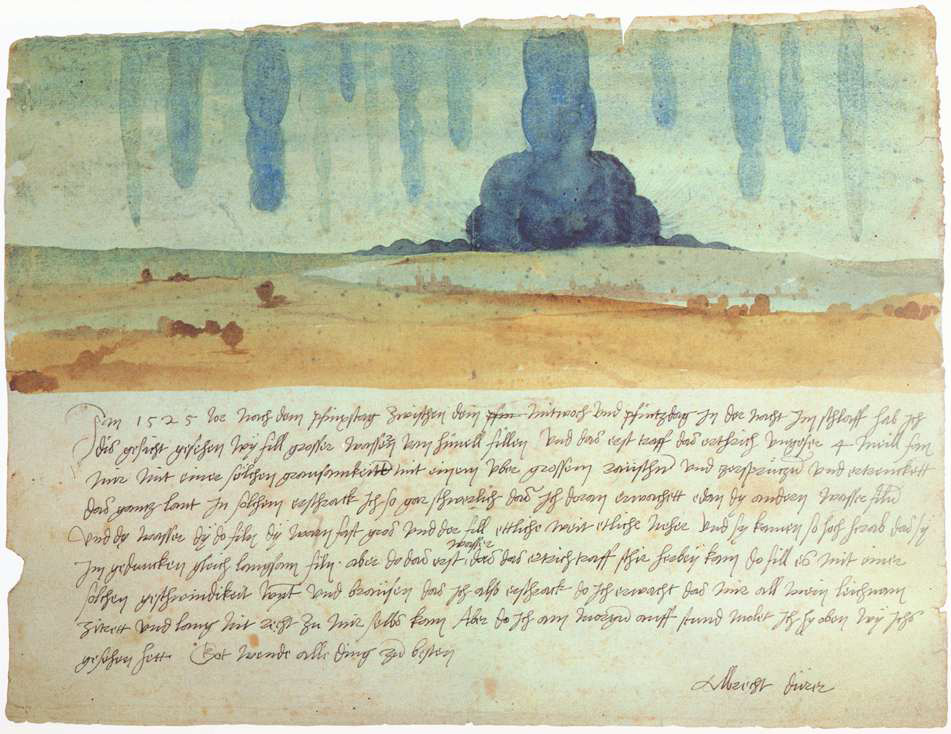 Im 1525 Jor nach dem pfinxstag zwischen dem pfin mitwoch und pfintzdag in der nacht im schlaff hab ich
dis gesicht gesehen wy fill grosser wassern vom himell fillen Und das erst traff das erthrich ungefer 4 meill fan
mir mit einer solchen grausamkeitt mit einem uber grossem raüschn und zersprützn und ertrenckett
das gantz lant In solchem erschrack ich so gar schwerlich das ich doran erwachett e dan dy andern wasser filn
Und dy wasser dy do filn dy warn fast gros und der fill ettliche weit etliche neher und sy kamen so hoch herab das sy
im gedancken gleich langsam filn. aber do das erst wasser das das ertrich traff schir herbey kam do fill es mit einer
solchen geschwindikeit wynt und braüsen das ich also erschrack do ich erwacht das mir all mein leichnam
zitrett und lang nit recht zu mir selbs kam Aber do ich am morgn auff stund molet ich hy oben wy ichs
gesehen hett. Got wende alle ding zu besten
Albrecht dürer